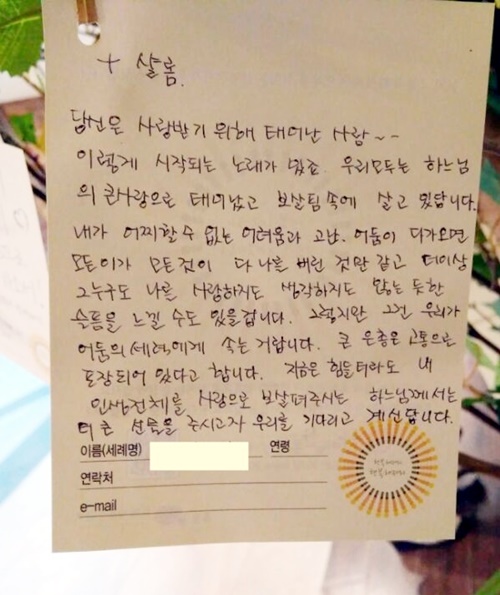 + 샬롬.
당신은 사랑받기 위해 태어난 사람~~
이렇게 시작되는 노래가 있죠. 우리모두는 하느님
의 큰사랑으로 태어났고 보살핌속에 살고 있답니다.
내가 어찌할 수 없는 어려움과 고난. 어둠이 다가오면
모든이가 모든것이 다 나를 버린 것만 같고 더이상
그누구도 나를 사랑하지도 생각하지도 않는 듯한
슬픔을 느낄 수도 있을겁니다. 그렇지만 그건 우리가
어둠의 세력에게 속는 거랍니다. 큰 은총은 고통으로
포장되어 있다고 합니다. 지금은 힘들더라도 내
인생전체를 사랑으로 보살펴주시는 하느님께서는
더 큰 선물을 주시고자 우리를 기다리고 계신답니다.
이름(세례명) 연령
연락처
e-mail